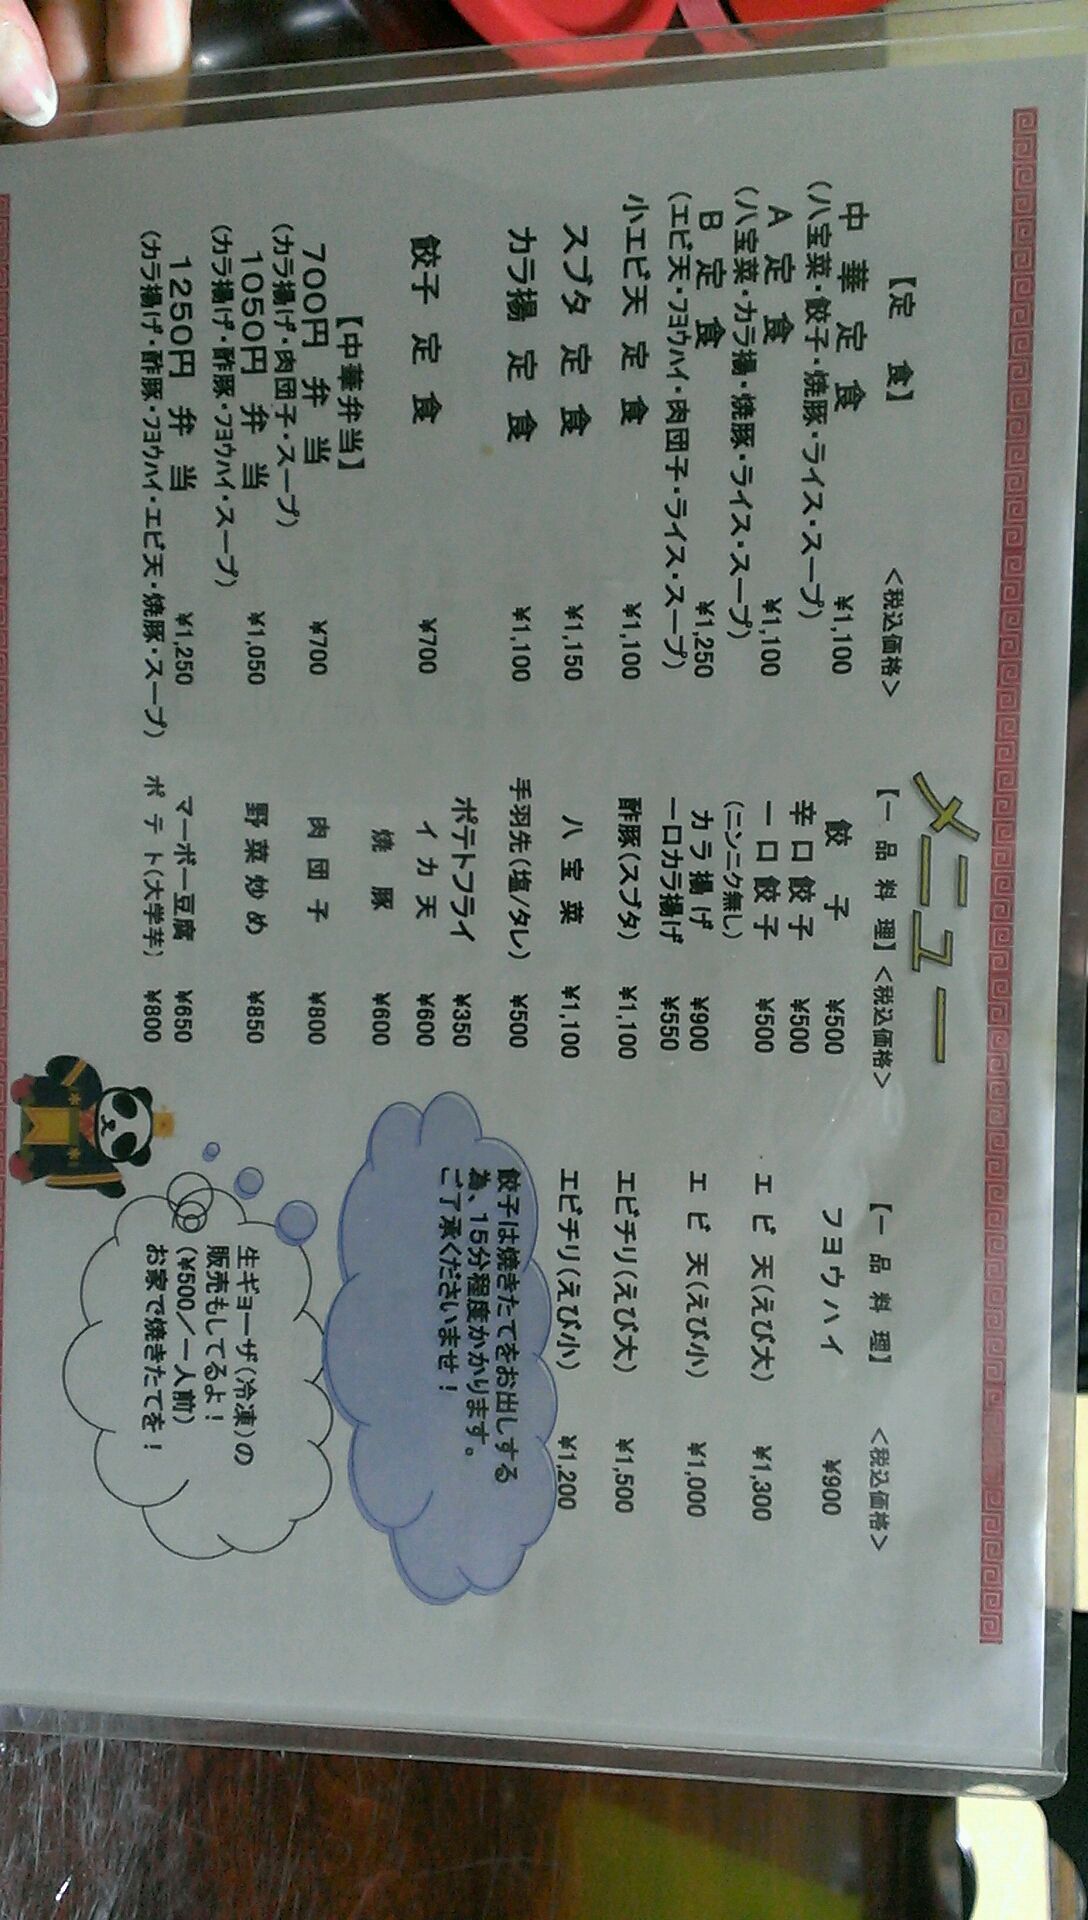 メニュー
【定 食】 <税込価格>
中 華 定 食 ¥1,100
(八宝菜・餃子・焼豚・ライス・スープ)
A 定 食 ¥1,100
(八宝菜・カラ揚・焼豚・ライス・スープ)
B 定 食 ¥1,250
(エビ天・フヨウハイ・肉団子・ライス・スープ)
小エビ天 定 食 ¥1,100
スブタ 定 食 ¥1,150
カラ揚 定 食 ¥1,100
餃子 定 食 ¥700
【中華弁当】
700円 弁 当 ¥700
(カラ揚げ・肉団子・スープ)
1050円 弁 当 ¥1,050
(カラ揚げ・酢豚・フヨウハイ・スープ)
1250円 弁 当 ¥1,250
(カラ揚げ・酢豚・フヨウハイ・エビ天・焼豚・スープ)
【一 品 料 理】 <税込価格>
餃 子 ¥500
辛口餃子 ¥500
一口餃子 ¥500
(ニンニク無し)
カラ揚げ ¥900
一口カラ揚げ ¥550
酢豚(スブタ) ¥1,100
八 宝 菜 ¥1,100
手羽先(塩/タレ) ¥500
ポテトフライ ¥350
イ カ 天 ¥600
焼 豚 ¥600
肉 団 子 ¥800
野 菜 炒 め ¥850
マーボー豆腐 ¥650
ポ テ ト(大学芋) ¥800
【一 品 料 理】 <税込価格>
フヨウハイ ¥900
エ ビ 天(えび大) ¥1,300
エ ビ 天(えび小) ¥1,000
エビチリ(えび大) ¥1,500
エビチリ(えび小) ¥1,200
餃子は焼きたてをお出しする
為、15分程度かかります。
ご了承くださいませ!
生ギョーザ(冷凍)の
販売もしてるよ!
(¥500/一人前)
お家で焼きたてを!